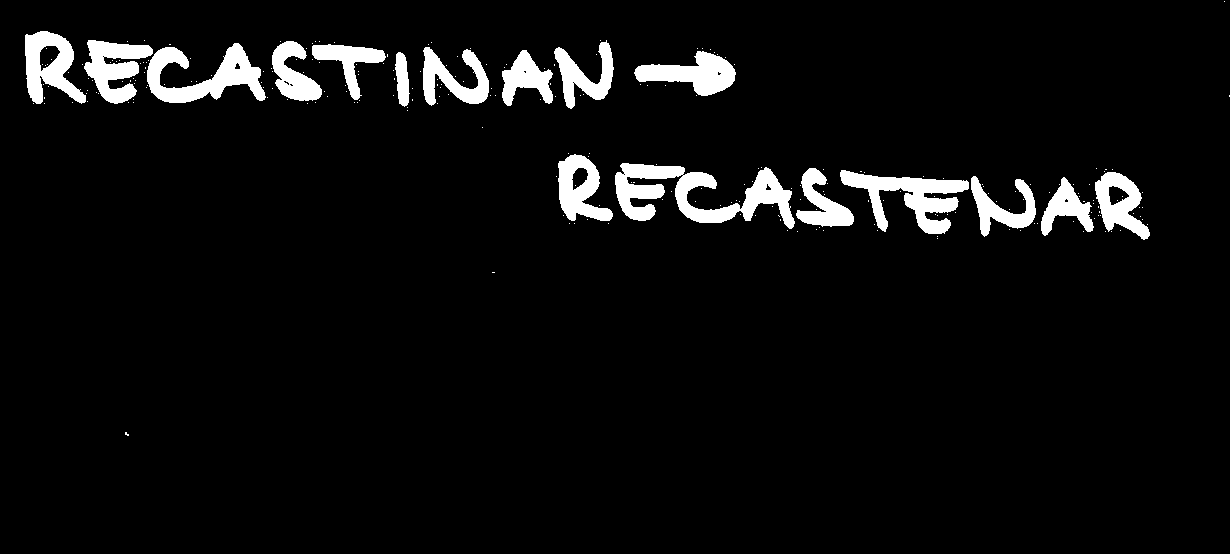 RECASTINAN →
RECASTENAR